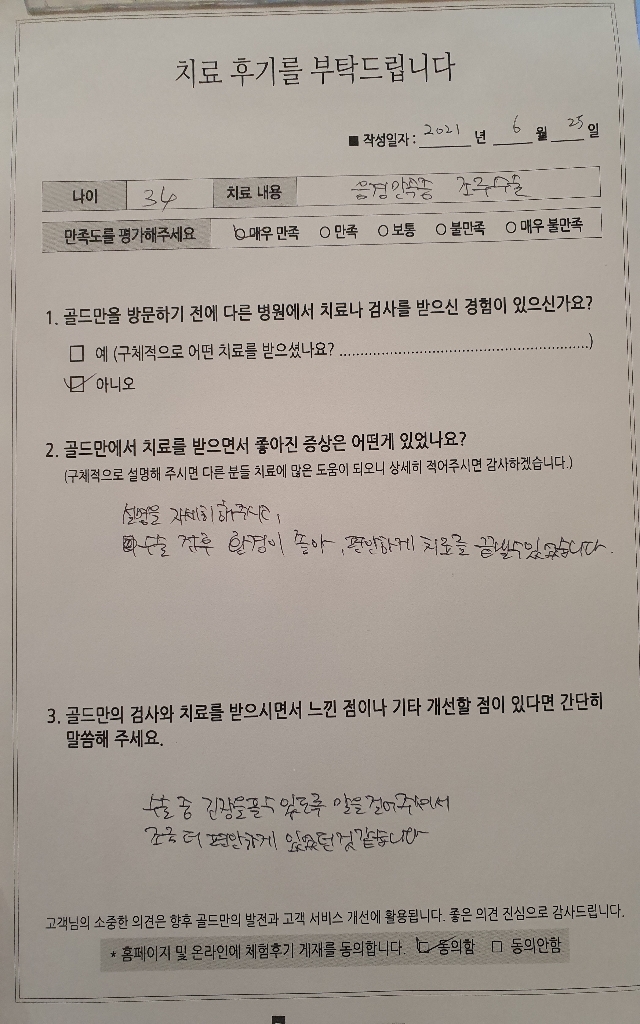 치료 후기를 부탁드립니다
■ 작성일자 : 2021 년 6 월 25 일
나이 34 치료 내용 음경만곡증 조루수술
만족도를 평가해주세요 매우 만족 ○ 만족 ○ 보통 ○ 불만족 ○ 매우 불만족
1. 골드만을 방문하기 전에 다른 병원에서 치료나 검사를 받으신 경험이 있으신가요?
□ 예 (구체적으로 어떤 치료를 받으셨나요? ........................................................)
☑ 아니오
2. 골드만에서 치료를 받으면서 좋아진 증상은 어떤게 있었나요?
(구체적으로 설명해 주시면 다른 분들 치료에 많은 도움이 되오니 상세히 적어주시면 감사하겠습니다.)
설명을 자세히 해주시고,
수술 전후 환경이 좋아, 편안하게 치료를 끝낼수있었습니다.
3. 골드만의 검사와 치료를 받으시면서 느낀 점이나 기타 개선할 점이 있다면 간단히
말씀해 주세요.
수술 중 긴장을 풀수있도록 말을 걸어주셔서
조금 더 편안하게 있었던것 같습니다
고객님의 소중한 의견은 향후 골드만의 발전과 고객 서비스 개선에 활용됩니다. 좋은 의견 진심으로 감사드립니다.
* 홈페이지 및 온라인에 체험후기 게재를 동의합니다. ☑ 동의함 □ 동의안함